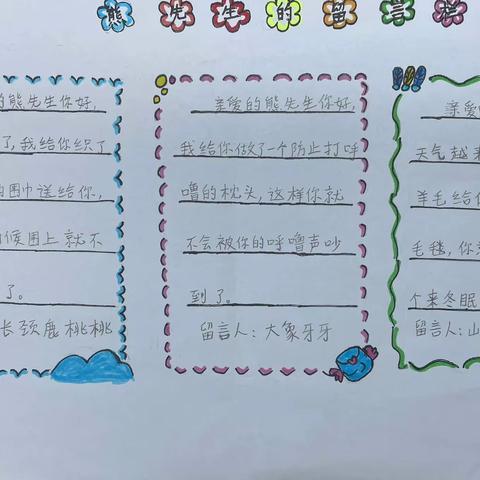 熊先生的留言
的熊先生你好,
了,我给你织了
围巾送给你,
候围上就不
了。
长颈鹿桃桃
亲爱的熊先生你好,
我给你做了一个防止打呼
噜的枕头,这样你就
不会被你的呼噜声吵
到了。
留言人:大象牙牙
亲爱
天气越来
羊毛给你
毛毯,你
个来冬眠
留言人:山